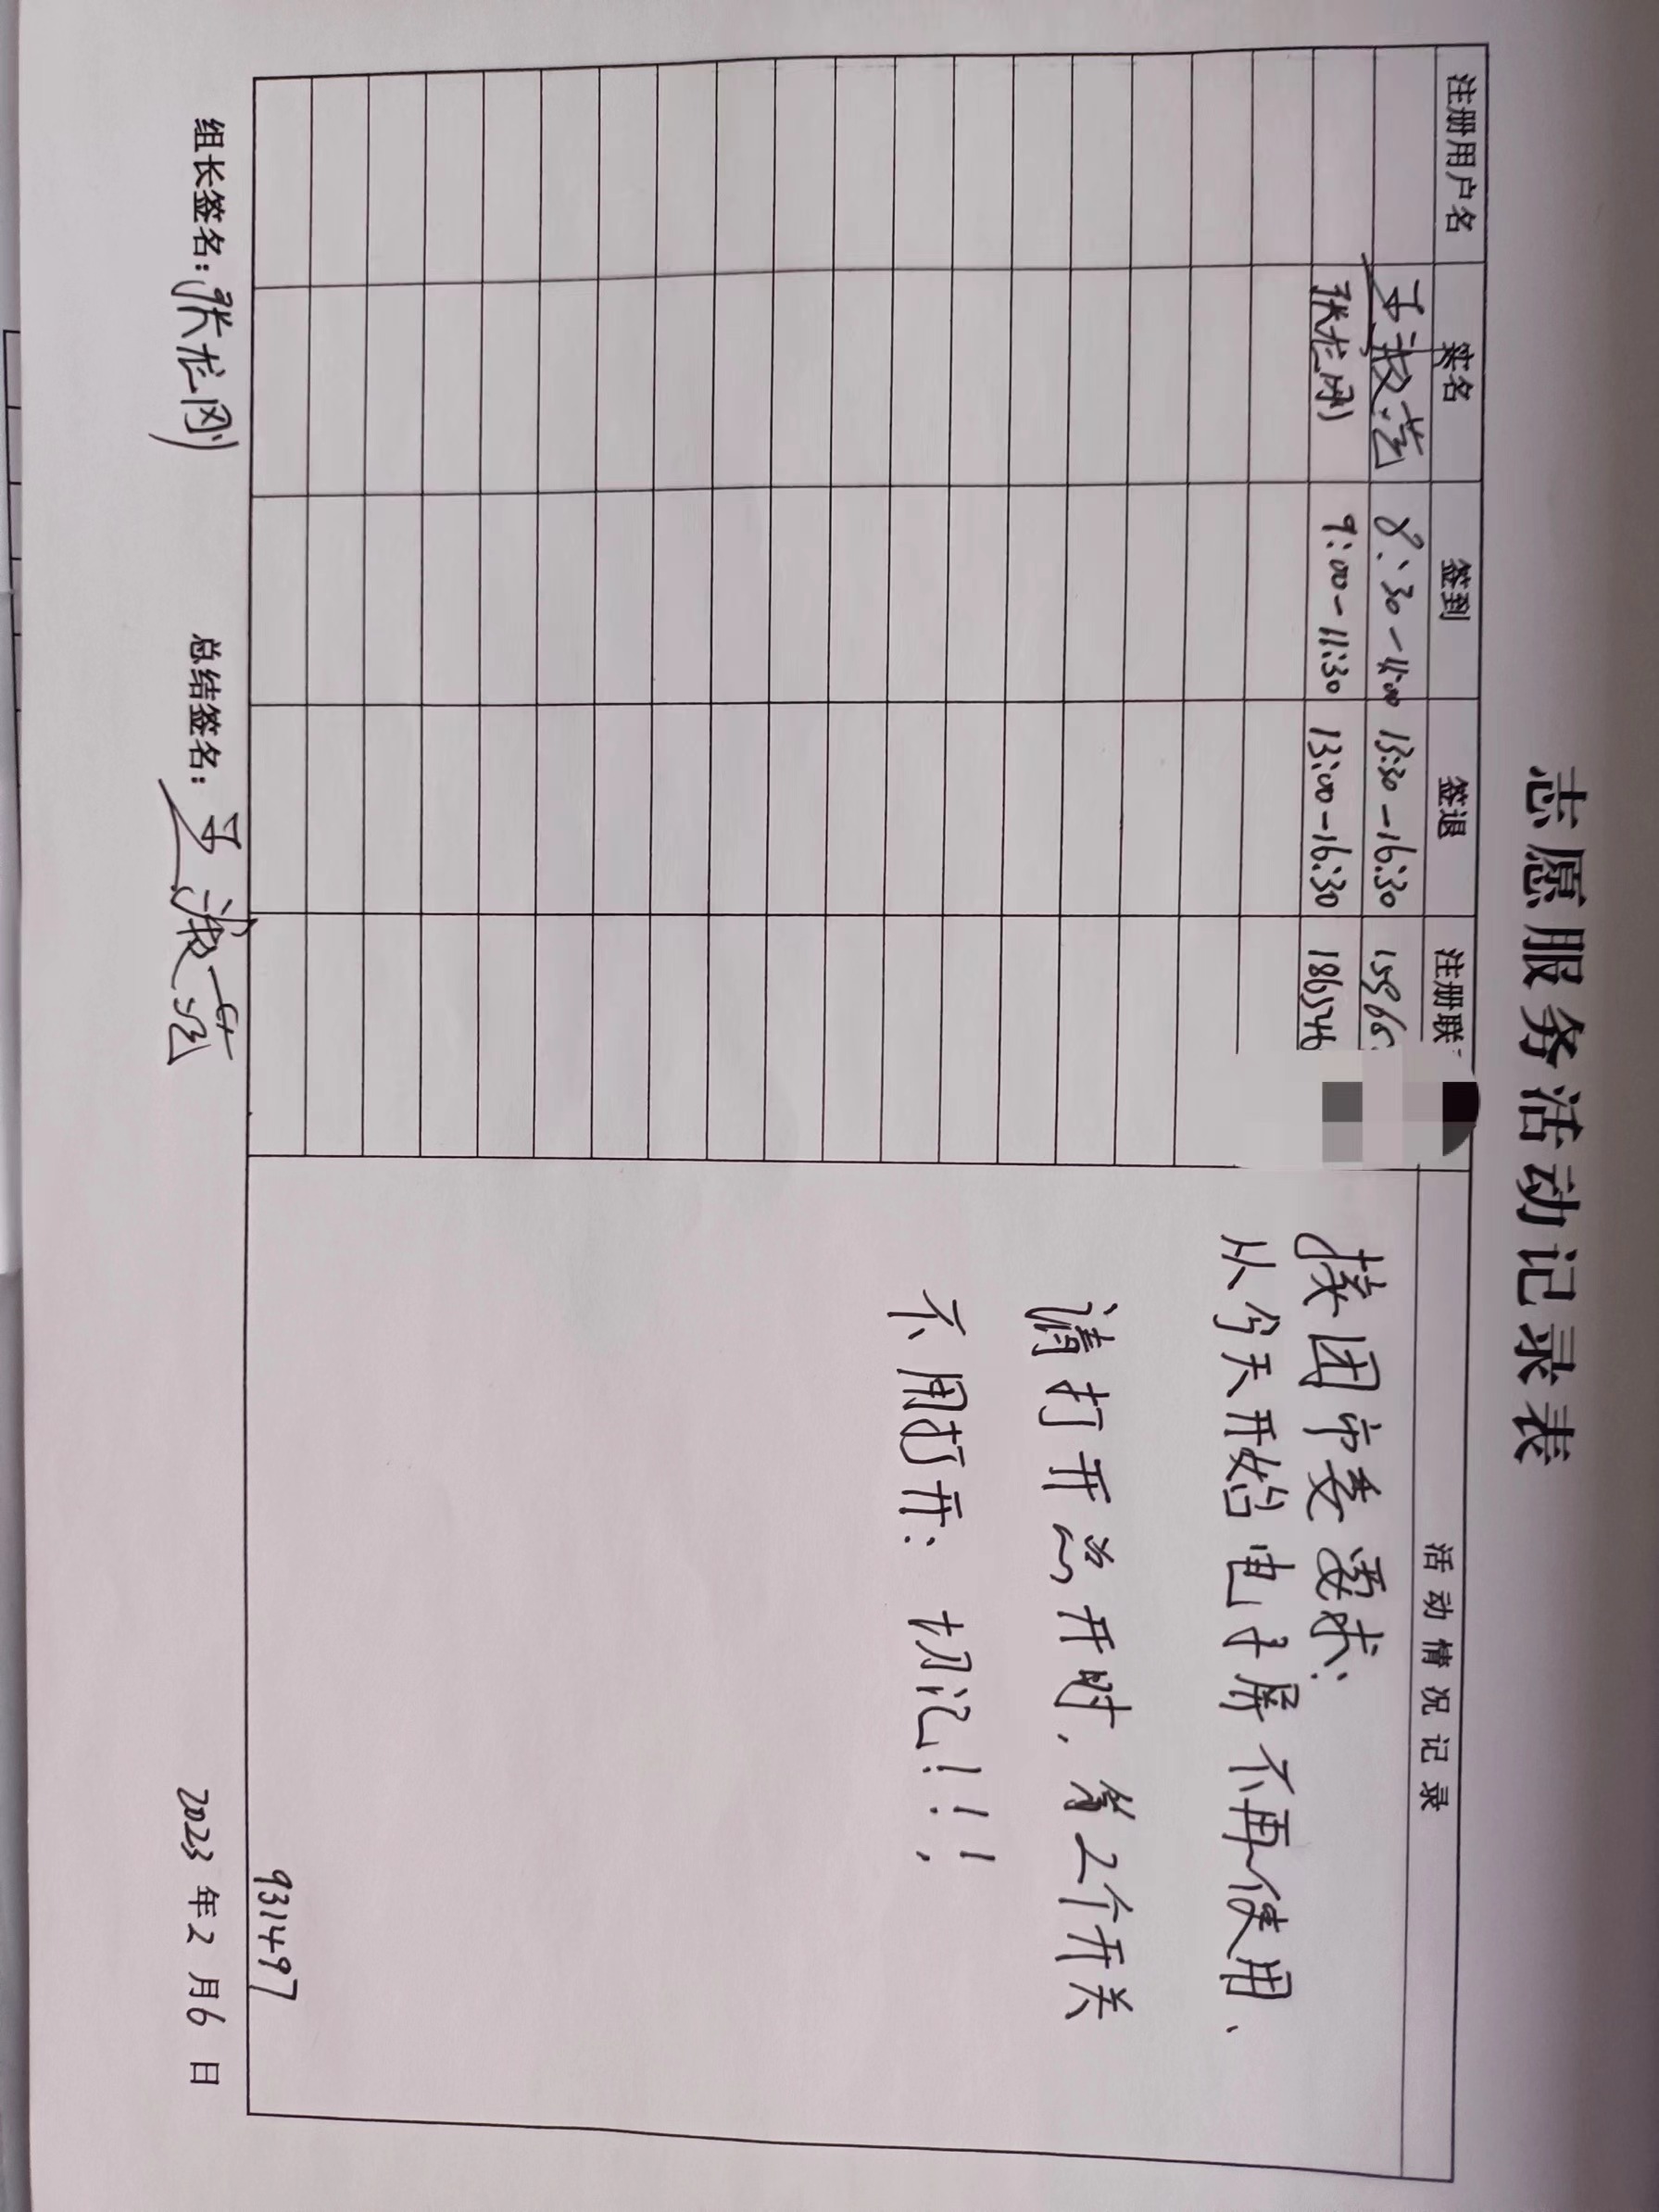 志愿服务活动记录表
注册用户名 签名 签到 签退 注册联 活动情况记录
8:30-11:00 13:30-16:30 15966
张龙刚 9:00-11:30 13:00-16:30 1865246
接团市委要求:
从今天开始电子屏不再使用、
请打开公开时,第2个开关
不用打开: 切记!!!
931497
组长签名:张龙刚 总结签名: 2023年2月6日